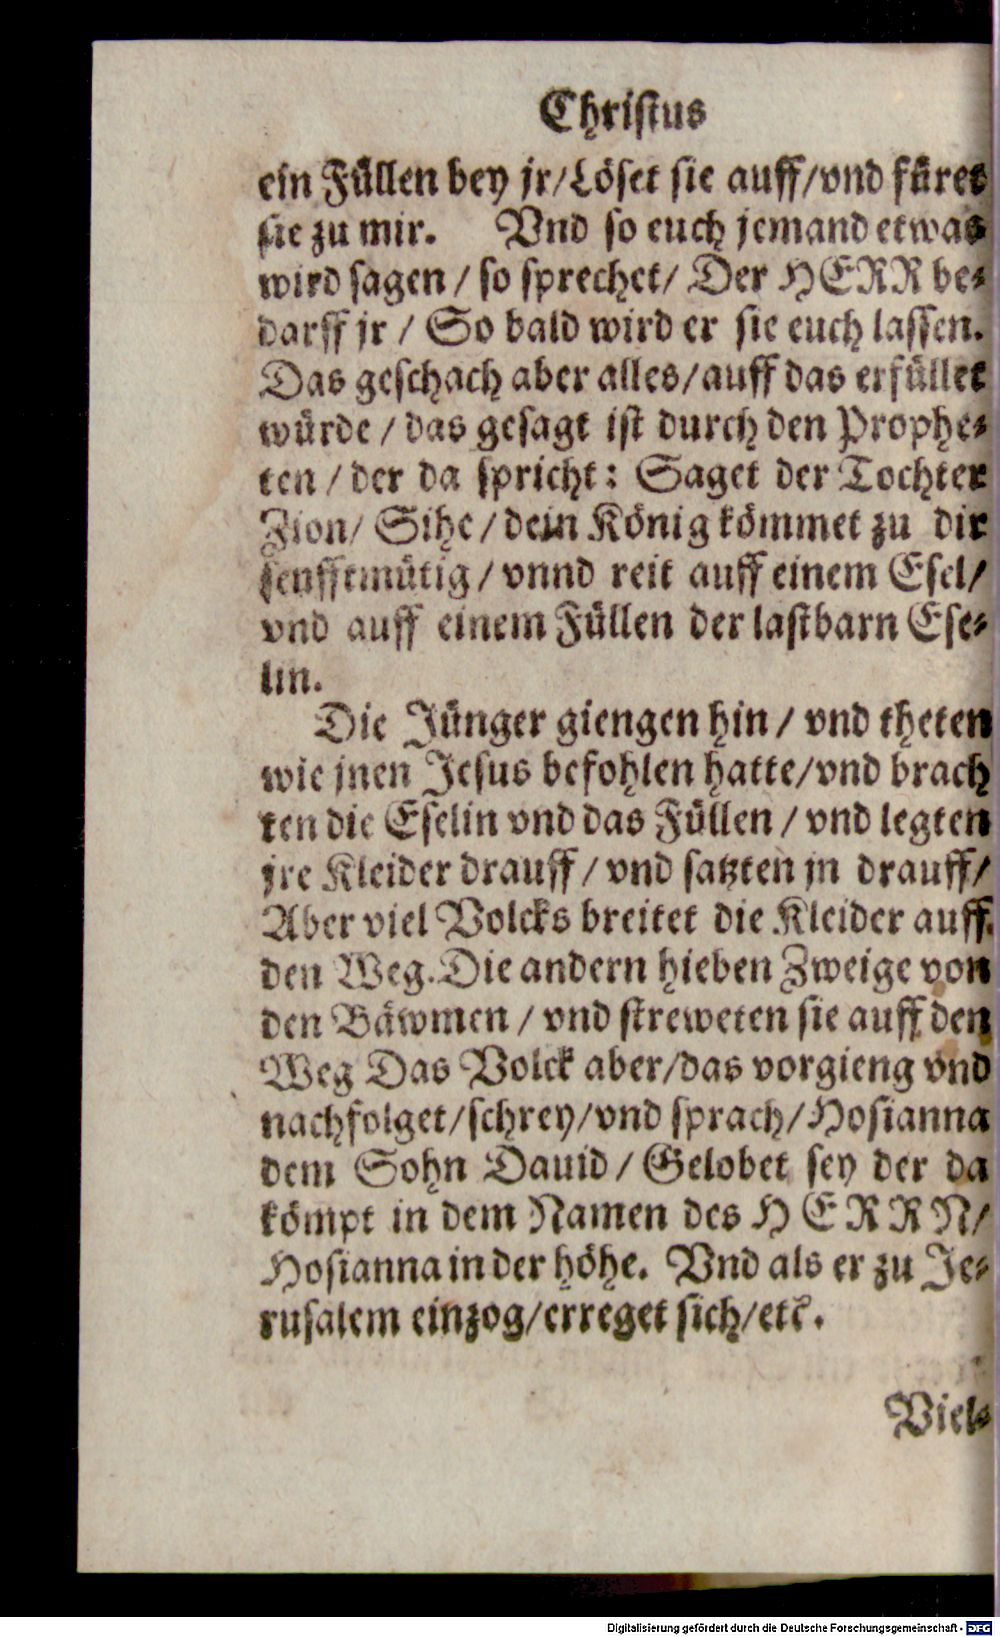 Christus
ein Füllen bey jr/Löset sie auff/vnd füret
sie zu mir. Vnd so euch jemand etwas
wird sagen / so sprechet/ Der HERR be-
darff jr / So bald wird er sie euch lassen.
Das geschach aber alles/auff das erfüllet
würde / das gesagt ist durch den Prophe-
ten / der da spricht: Saget der Tochter
Zion/ Sihe / dein König kömmet zu dir
senfftmütig / vnnd reit auff einem Esel/
vnd auff einem Füllen der lastbarn Ese-
lin.
Die Jünger giengen hin / vnd theten
wie jnen Jesus befohlen hatte/vnd brach
ten die Eselin vnd das Füllen / vnd legten
jre Kleider drauff / vnd satzten jn drauff/
Aber viel Volcks breitet die Kleider auff.
den Weg. Die andern hieben Zweige von
den Bäwmen / vnd streweten sie auff den
Weg Das Volck aber/das vorgieng vnd
nachfolget/schrey/vnd sprach/Hosianna
dem Sohn Dauid / Gelobet sey der da
kömpt in dem Namen des HERRN/
Hosianna in der höhe. Vnd als er zu Je-
rusalem einzog/erreget sich/etc.
Viel-
Digitalisierung gefördert durch die Deutsche Forschungsgemeinschaft - DFG